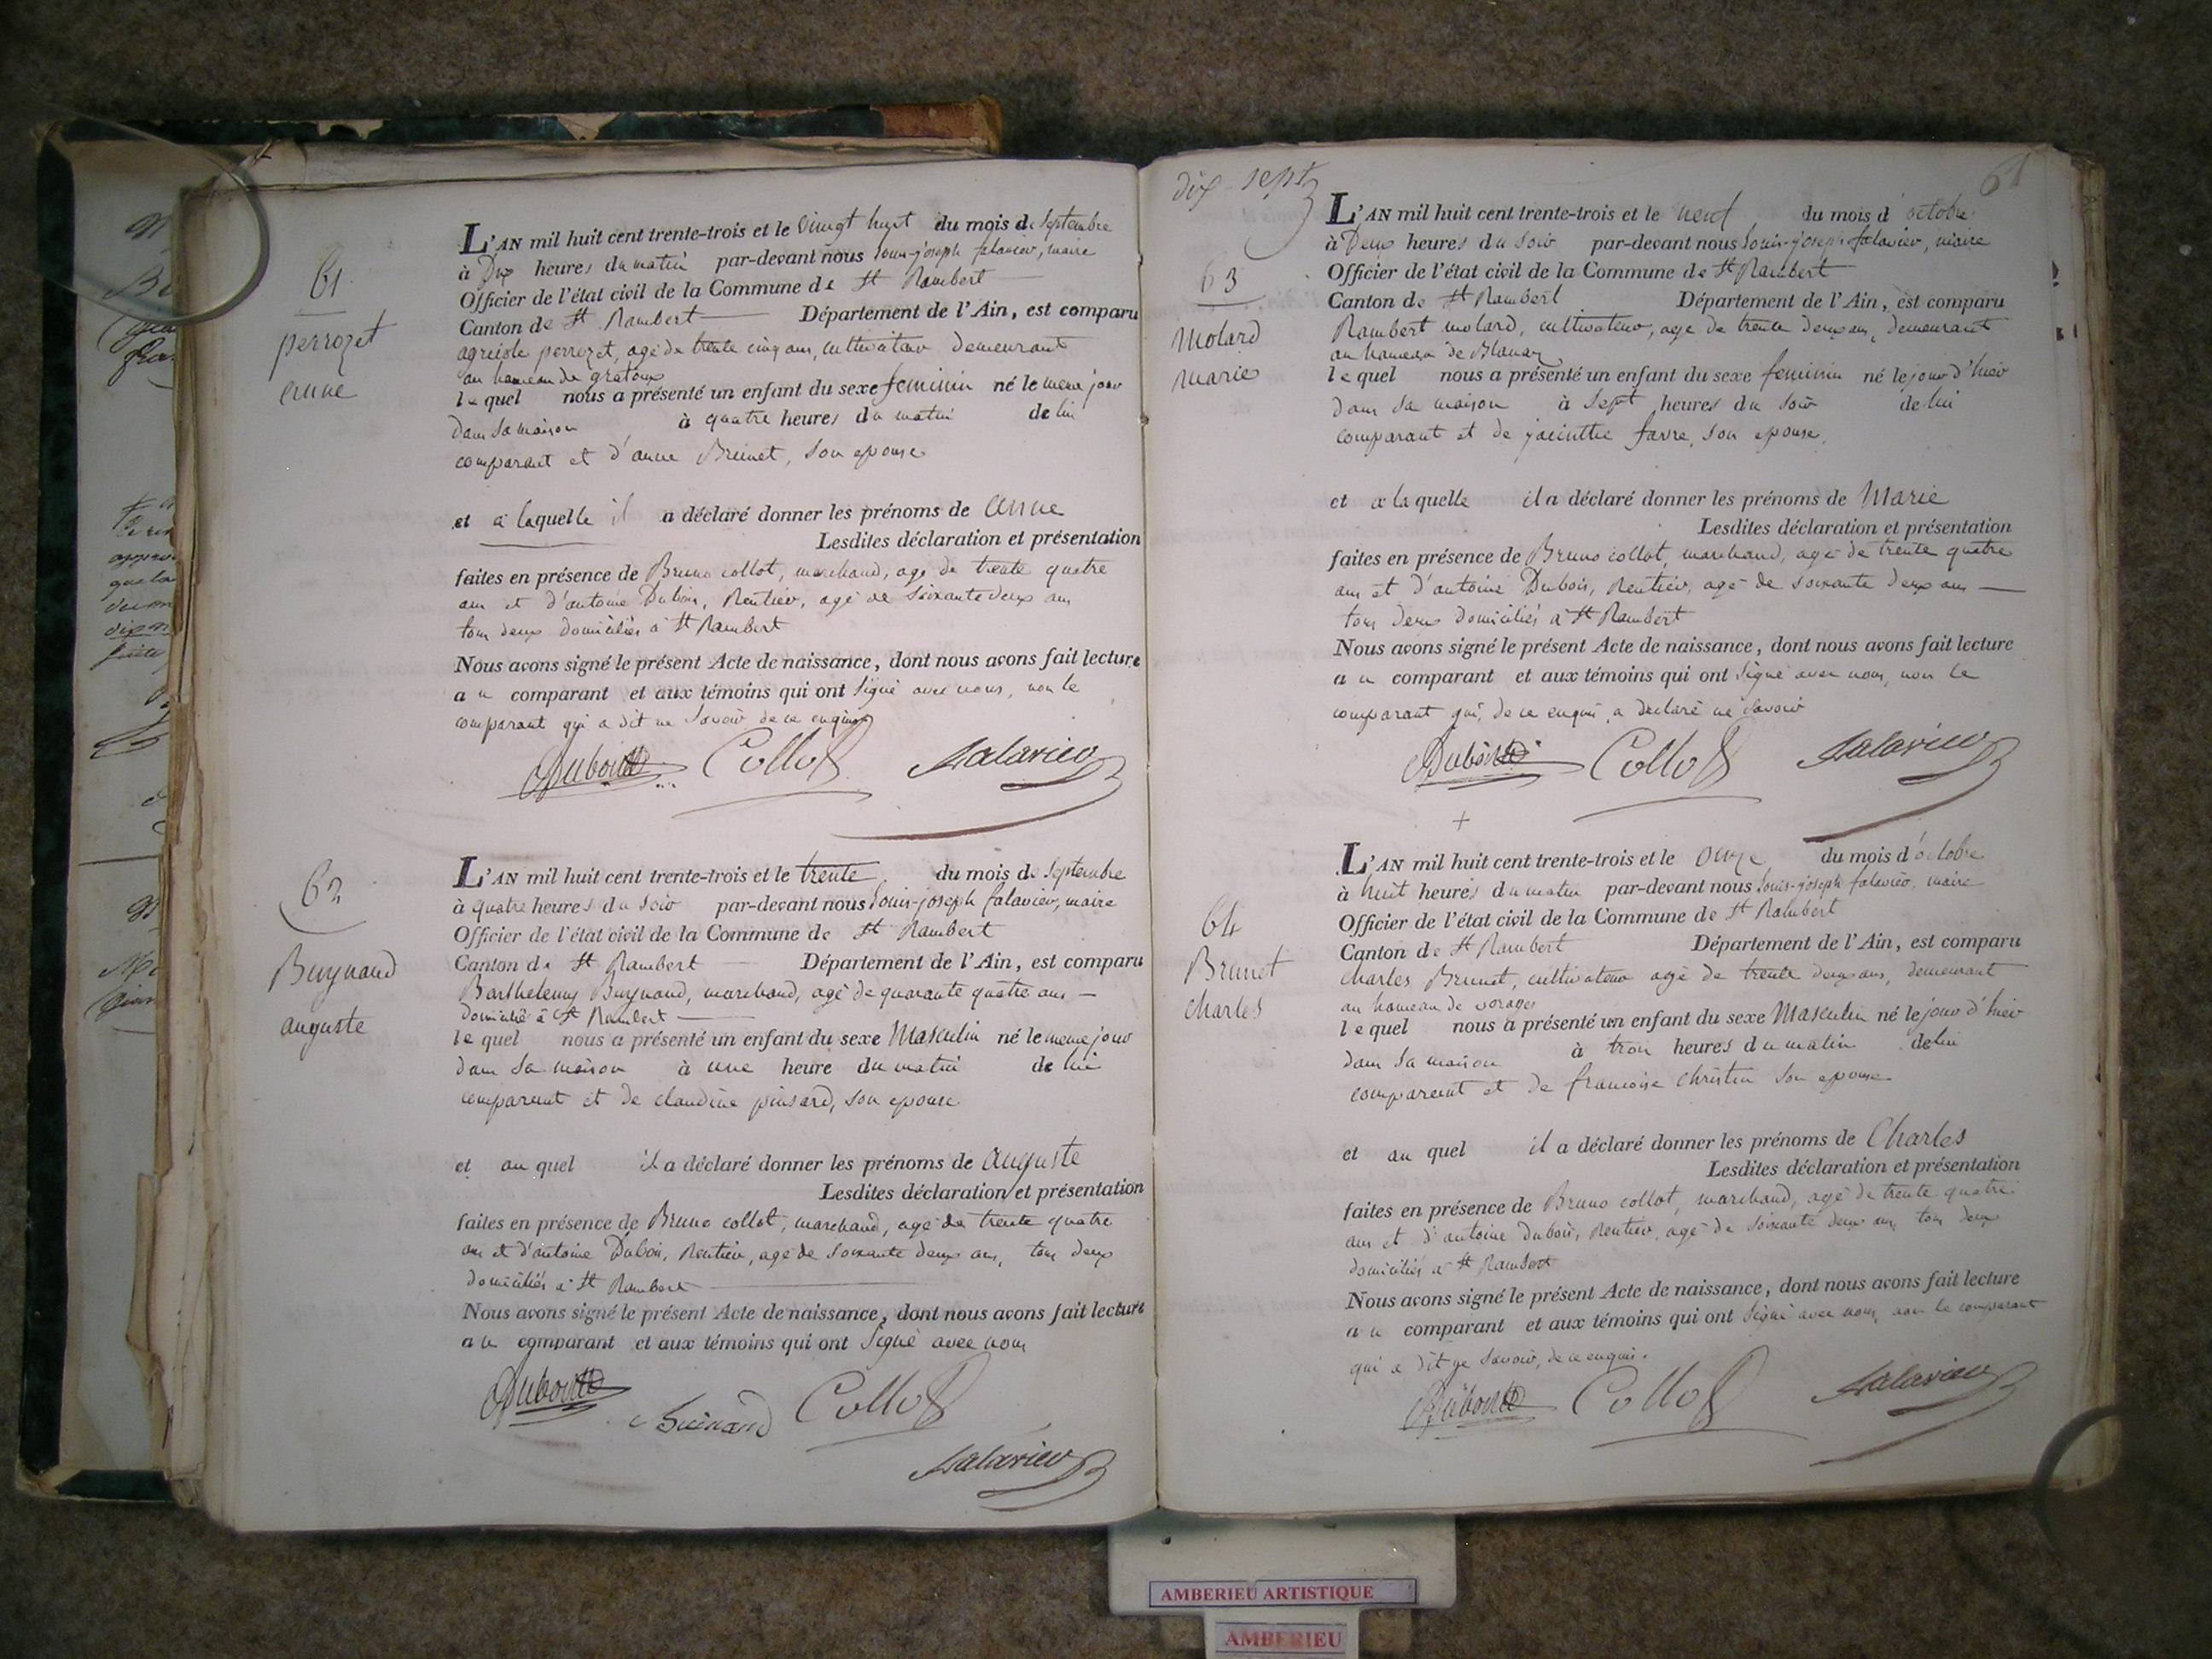 61
perrozet
anne
L'AN mil huit cent trente-trois et le vingt huit du mois de Septembre
à Dix heures du matin par-devant nous Louis-joseph falavier, maire
Officier de l'état civil de la Commune de St Rambert
Canton de St Rambert Département de l'Ain, est comparu
agricole perrozet, agé de trente cinq ans, cultivateur demeurant
au hameau de gratoux
lequel nous a présenté un enfant du sexe feminin né le meme jour
dans sa maison à quatre heures du matin de lui
comparant et d'anne Brunet, son epouse
et a laquelle il a déclaré donner les prénoms de anne
Lesdites déclaration et présentation
faites en présence de Bruno collot, marchand, agé de trente quatre
ans et d'antoine Dubois, Rentier, agé de soixante deux ans
tous deux domiciliés à St Rambert
Nous avons signé le présent Acte de naissance, dont nous avons fait lecture
au comparant et aux témoins qui ont signé avec nous, non le
comparant qui a dit ne savoir de ce enquis
Dubois Collot falavier
62
Buynand
auguste
L'AN mil huit cent trente-trois et le trente du mois de Septembre
à quatre heures du soir par-devant nous Louis-joseph falavier, maire
Officier de l'état civil de la Commune de St Rambert
Canton de St Rambert Département de l'Ain, est comparu
Barthelemy Buynand, marchand, agé de quarante quatre ans
domicilié à St Rambert
lequel nous a présenté un enfant du sexe Masculin né le meme jour
dans sa maison à une heure du matin de lui
comparant et de claudine pinsard, son epouse
et au quel il a déclaré donner les prénoms de auguste
Lesdites déclaration et présentation
faites en présence de Bruno collot, marchand, agé de trente quatre
ans et d'antoine Dubois, Rentier, agé de soixante deux ans, tous deux
domiciliés à St Rambert
Nous avons signé le présent Acte de naissance, dont nous avons fait lecture
au comparant et aux témoins qui ont signé avec nous
Dubois Buinand Collot
falavier
dix sept
61
63
Molard
Marie
L'AN mil huit cent trente-trois et le neuf du mois d'octobre
à Deux heures du soir par-devant nous Louis-joseph falavier, maire
Officier de l'état civil de la Commune de St Rambert
Canton de St Rambert Département de l'Ain, est comparu
Rambert molard, cultivateur, agé de trente deux ans, demeurant
au hameau de Blanaz
lequel nous a présenté un enfant du sexe feminin né le jour d'hier
dans sa maison à sept heures du soir de lui
comparant et de jacinthe favre, son epouse
et a laquelle il a déclaré donner les prénoms de Marie
Lesdites déclaration et présentation
faites en présence de Bruno collot, marchand, agé de trente quatre
ans et d'antoine Dubois, Rentier, agé de soixante deux ans
tous deux domiciliés à St Rambert
Nous avons signé le présent Acte de naissance, dont nous avons fait lecture
au comparant et aux témoins qui ont signé avec nous, non le
comparant qui, de ce enquis, a declaré ne savoir
Dubois Collot falavier
64
Brunet
Charles
L'AN mil huit cent trente-trois et le onze du mois d'octobre
à huit heures du matin par-devant nous Louis-joseph falavier, maire
Officier de l'état civil de la Commune de St Rambert
Canton de St Rambert Département de l'Ain, est comparu
Charles Brunet, cultivateur agé de trente deux ans, demeurant
au hameau de vorages
lequel nous a présenté un enfant du sexe Masculin né le jour d'hier
dans sa maison à trois heures du matin de lui
comparant et de francoise christin son epouse
et au quel il a déclaré donner les prénoms de Charles
Lesdites déclaration et présentation
faites en présence de Bruno collot, marchand, agé de trente quatre
ans et d'antoine Dubois, Rentier, agé de soixante deux ans, tous deux
domiciliés à St Rambert
Nous avons signé le présent Acte de naissance, dont nous avons fait lecture
au comparant et aux témoins qui ont signé avec nous, non le comparant
qui a dit ne savoir, de ce enquis.
Dubois Collot falavier
AMBERIEU ARTISTIQUE
AMBERIEU